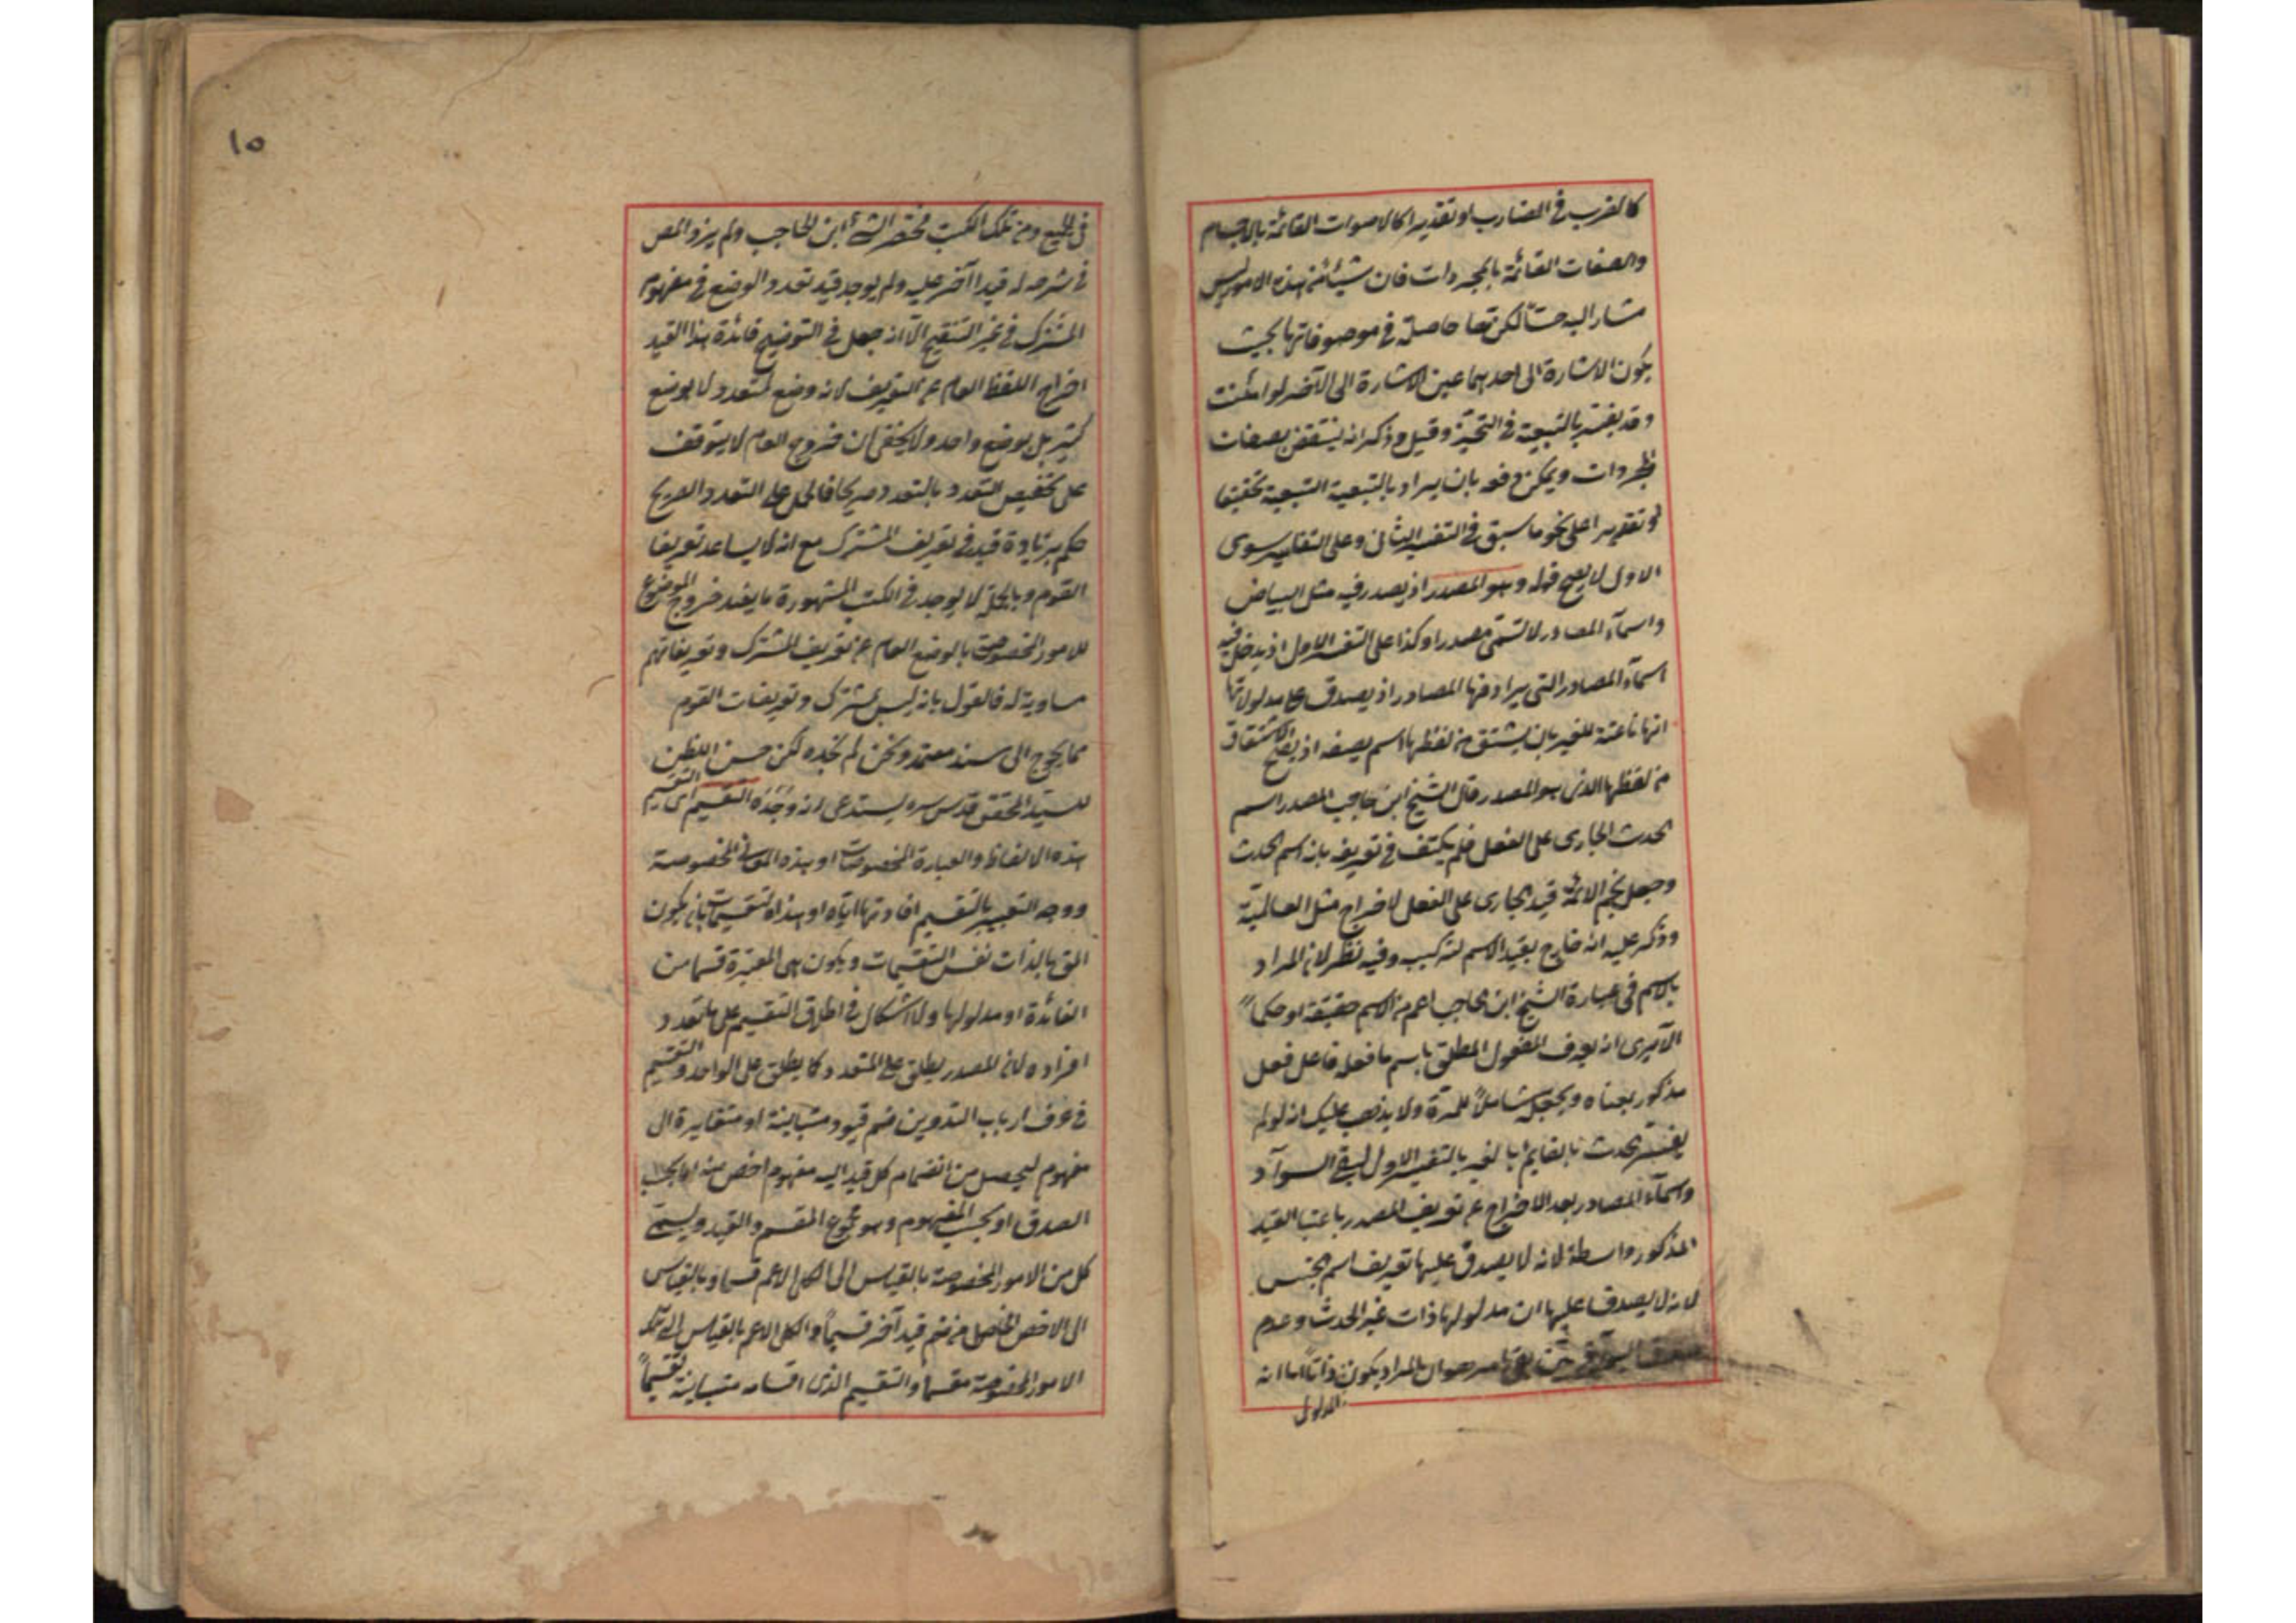 كالضرب في الضارب او تقديرا كالاصوات القائمة بالاجسام
والصفات القائمة بالمجردات فان شيئا من هذه الامور ليس
مشارا اليه حسا لكن تعا حاصلة في موصوفاتها بحيث
يكون الاشارة الى احدهما عين الاشارة الى الآخر لو امكنت
وقد يفسر بالتبعية في التحيز وقيل وذكر انه ينتقض بصفات
المجردات ويمكن دفعه بان يراد بالتبعية التبعية تحقيقا
او تقديرا على نحو ما سبق في التفسير الثاني وعلى التفاسير سوى
الاول لا يصح قوله وهو المصدر اذ يصدر فيه مثل البياض
واسماء المصادر لا تسمى مصدرا وكذا على التفسير الاول اذ يدخل فيه
اسماء المصادر التي يرادفها المصادر اذ يصدق على مدلولاتها
انها ناعتة للغير بان يشتق من لفظها اسم يصفه اذ يصح الاشتقاق
من لفظها الذي هو المصدر قال الشيخ ابن حاجب المصدر اسم
الحدث الجاري على الفعل فلم يكتف في تعريفه بانه اسم الحدث
وجعل نجم الائمة قيد الجاري على الفعل لاخراج مثل العالمية
وذكر عليه انه خارج بقيد الاسم لتركيب وفيه نظر لان المراد
بالاسم في عبارة الشيخ ابن الحاجب اعم من الاسم حقيقة او حكما
الا يرى انه يعرف المفعول المطلق باسم ما فعله فاعل فعل
مذكور بمعناه ويجعل شاملا للمرة ولا يذهب عليك انه لو لم
يفسر الحدث بالقايم بالغير بالتفسير الاول لبقي السوآد
واسماء المصادر بعد الاخراج عن تعريف المصدر باعتبا القيد
المذكور واسطة لانه لا يصدق عليها تعريف اسم الجنس
لانه لا يصدق عليها ان مدلولها ذات غير الحدث وعدم
المراد بكون ذاتا اما انه
المدلول
في الجميع ومن تلك الكتب مختصر الشيخ ابن الحاجب ولم يزد المص
في شرحه له قيدا آخر عليه ولم يوجد قيد تعدد الوضع في مفهوم
المشترك في غير التنقيح الا انه جعل في التوضيح فائدة هذا القيد
اخراج اللفظ العام عن التعريف لانه وضع لمتعدد لا بوضع
كثير بل بوضع واحد ولا يخفى ان خروج العام لا يتوقف
على تخصيص التعدد بالتعدد صريحا فالحمل على التعدد الصريح
حكم بزيادة قيد في تعريف المشترك مع انه لا يساعد تعريفا
القوم وبالجملة لا يوجد في الكتب المشهورة ما يفيد خروج الموضوع
للامور المخصوصة بالوضع العام عن تعريف المشترك وتعريفاتهم
مساوية له فالقول بانه ليس بمشترك وتعريفات القوم
مما يحوج الى سند معتمد ونحن لم نجده لكن حسن الظن
للسيد المحقق قدس سره يستدعي انه وجده التقسيم اى التقسيم
هذه الالفاظ والعبارة المخصوصات او هذه المعاني المخصوصة
ووجه التعبير بالتقسيم افادتها اياه او هذه التقسيمات بان يكون
المق بالذات نفس التقسيمات ويكون هي المعتبرة قسما من
الفائدة او مدلولها ولا اشكال في اطلاق التقسيم على ما تعدد
افراده لان المصدر يطلق على المتعدد كما يطلق على الواحد والتقسيم
في عرف ارباب التدوين ضم قيود متباينة او متغايرة الى
مفهوم ليحصل من انضمام كل قيد اليه مفهوم اخص منه اما بحسب
الصدق او بحسب المفهوم وهو مجموع المقسم والقيد ويسمى
كل من الامور المخصوصة بالقياس الى الكل الاعم قسما وبالقياس
الى الاخص الحاصل من ضم قيد آخر قسيما والكل الاعم بالقياس الى تلك
الامور المخصوصة مقسما والتقسيم الذي اقسامه متباينة تقسيما
١٥